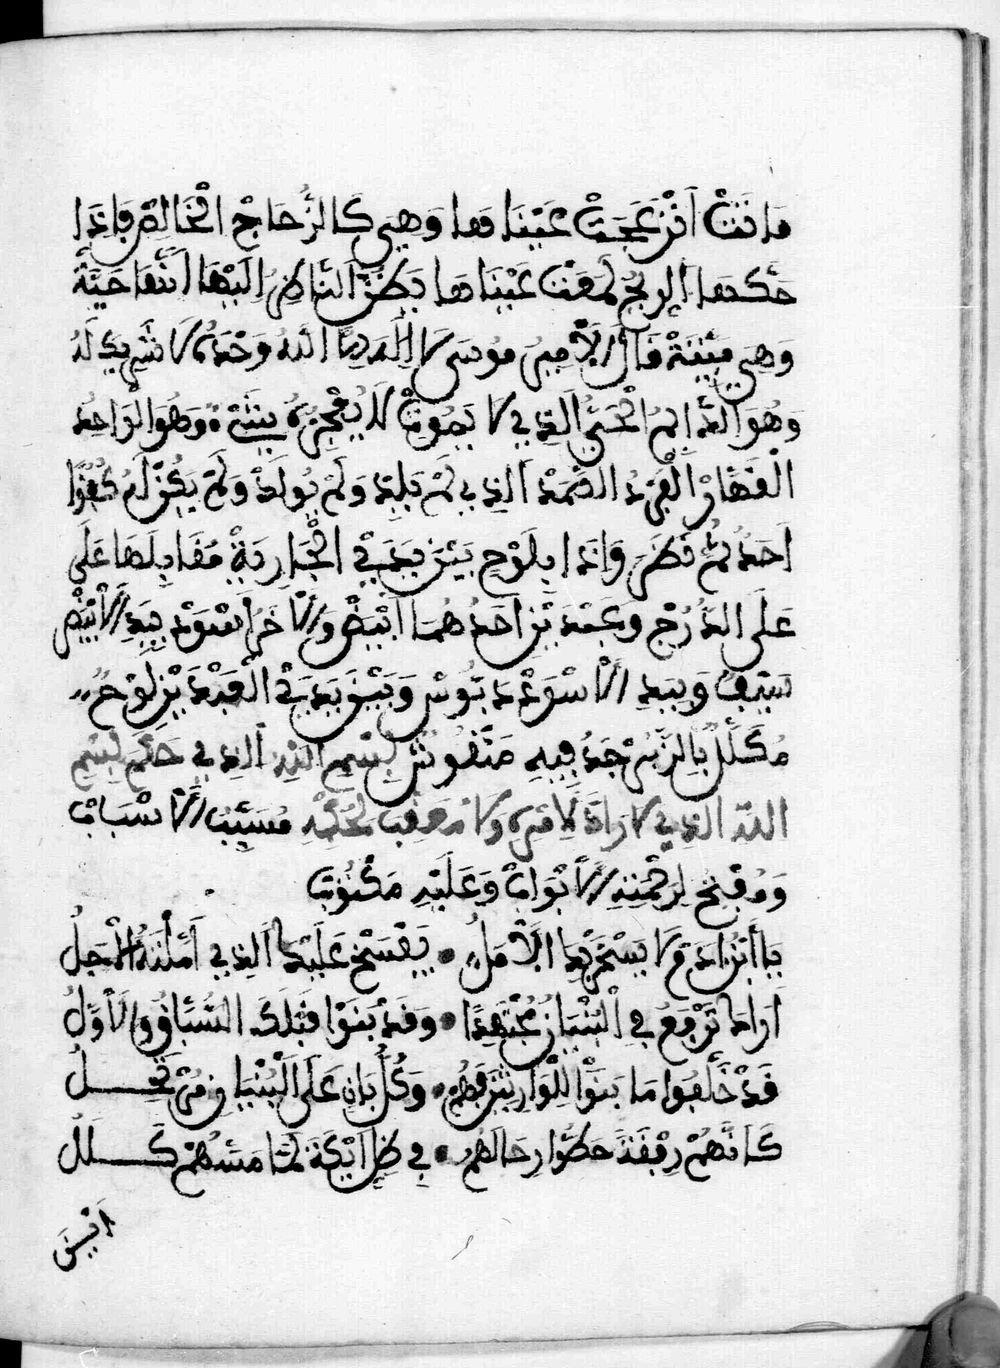 ماتت انزعجت عيناها وهي كالزجاج الخالص فاذا
حكها الريح لمعت عيناها يظن الناظر اليها انها حية
وهي ميتة قال الامير موسى لا اله الا الله وحده لا شريك له
وهو الدايم الحي الذي لا يموت لا يعجزه شيء وهو الواحد
القهار الفرد الصمد الذي لم يلد ولم يولد ولم يكن له كفؤا
احد ثم نظر واذا بلوح بين يدي الجارية مقابلها على
على الدرج وعبدين احدهما ابيض والاخر اسود بيد الابيض
سيف وبيد الاسود دبوس وبين يدي العبدين لوح
مكلل بالزبرجد فيه منقوش بسم الله الذي حكم بسم
الله الذي لا راد لامره ولا معقب لحكمه مسبب الاسباب
ومفتح لرحمته الابواب وعليه مكتوب
يا أبن ادم لا يستغرك الامل يفسخ عليك الذي املته الاجل
اراك ترفع في البنيان مجتهدا وقد بنوا قبلك السباق والاول
قد خلفوا ما بنوا للوارثين فهم وكل بان على الدنيا
كانهم رفقة حطوا رحالهم في ظل ايكة لما مسهم كلل